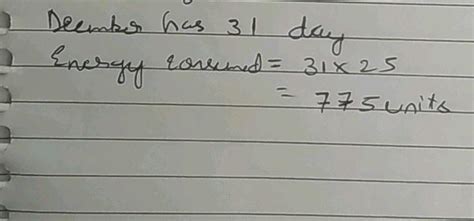 December has 31 day
Energy consumed = 31 x 25
= 775 units